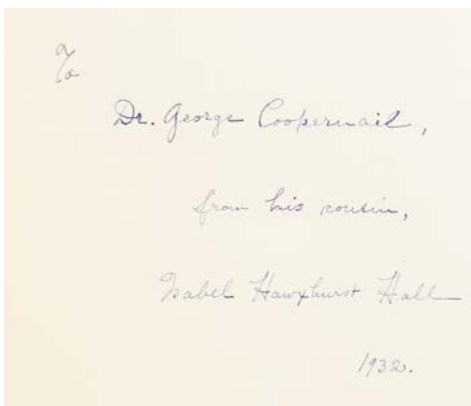 To
Dr. George Coopernail,
from his cousin,
Isabel Hawxhurst Hall
1932.